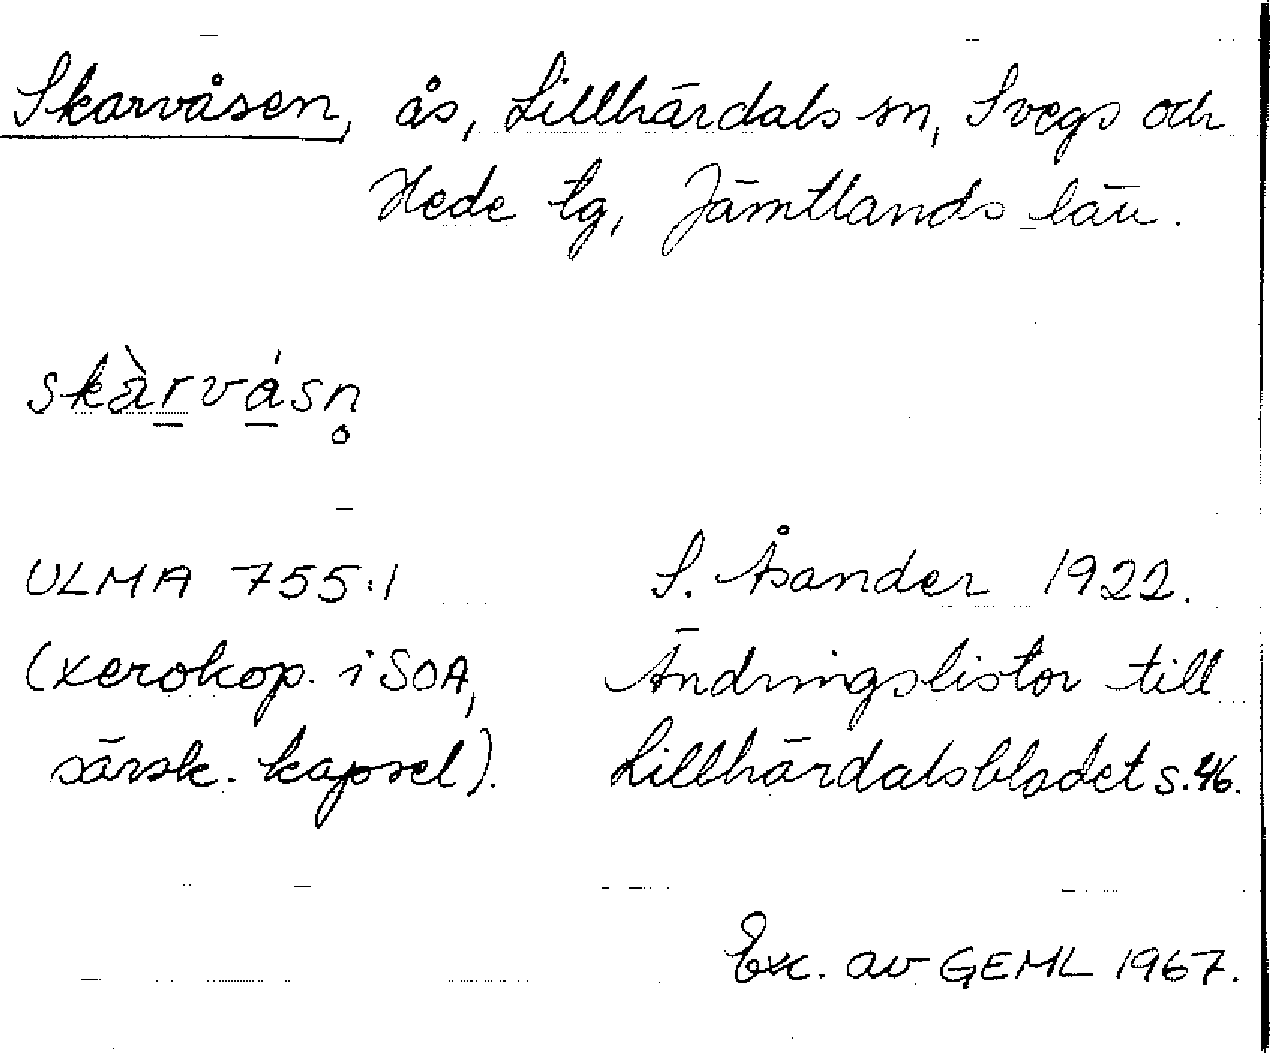 Skarvåsen, ås, Lillhärdals sn, Svegs och
Hede tg, Jämtlands län.
skàrvásn̥
ULMA 755:1 S. Åsander 1922.
(xerokop. i SOA, Ändringslistor till
särsk. kapsel). Lillhärdalsbladet s. 46.
Exc. av GEML 1967.